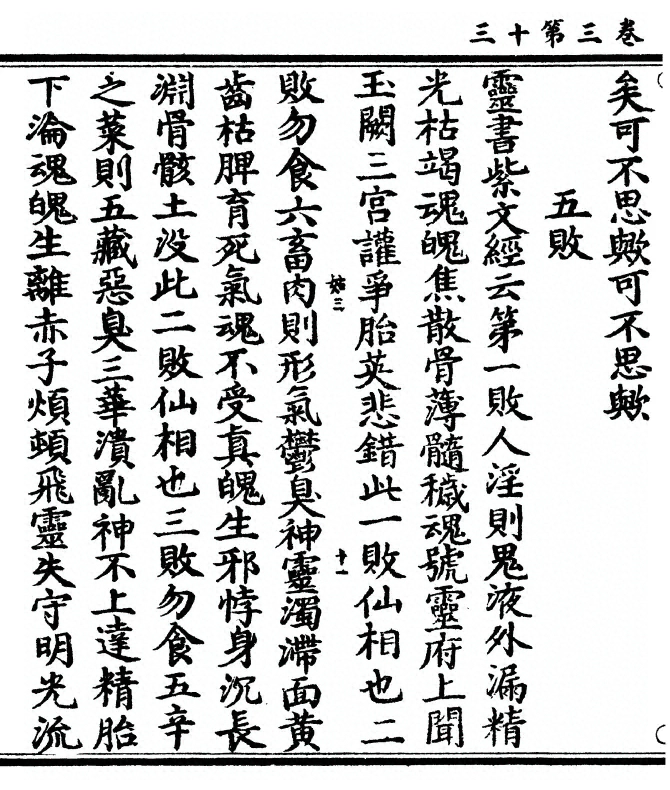 卷三第十三
矣可不思歟可不思歟
五敗
靈書紫文經云第一敗人淫則鬼液外漏精
光枯竭魂魄焦散骨薄髓穢魂號靈府上聞
玉闕三宮讙爭胎英悲錯此一敗仙相也二
姑三
十一
敗勿食六畜肉則形氣鬱臭神靈濁滯面黃
齒枯脾育死氣魂不受真魄生邪悖身沉長
淵骨骸土沒此二敗仙相也三敗勿食五辛
之菜則五藏惡臭三華潰亂神不上達精胎
下淪魂魄生離赤子煩頓飛靈失守明光流